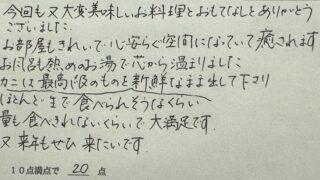 今回も又大変美味しいお料理とおもてなしをありがとう
ございました
お部屋もきれいで心安らぐ空間になっていて癒されます
お風呂も熱めのお湯で芯から温まりました
カニは最高級のものを新鮮なまま出して下さり
ほとんど生で食べられそうなくらい
量も食べきれないくらいで大満足です
又来年もぜひ来たいです。
10点満点で 20 点